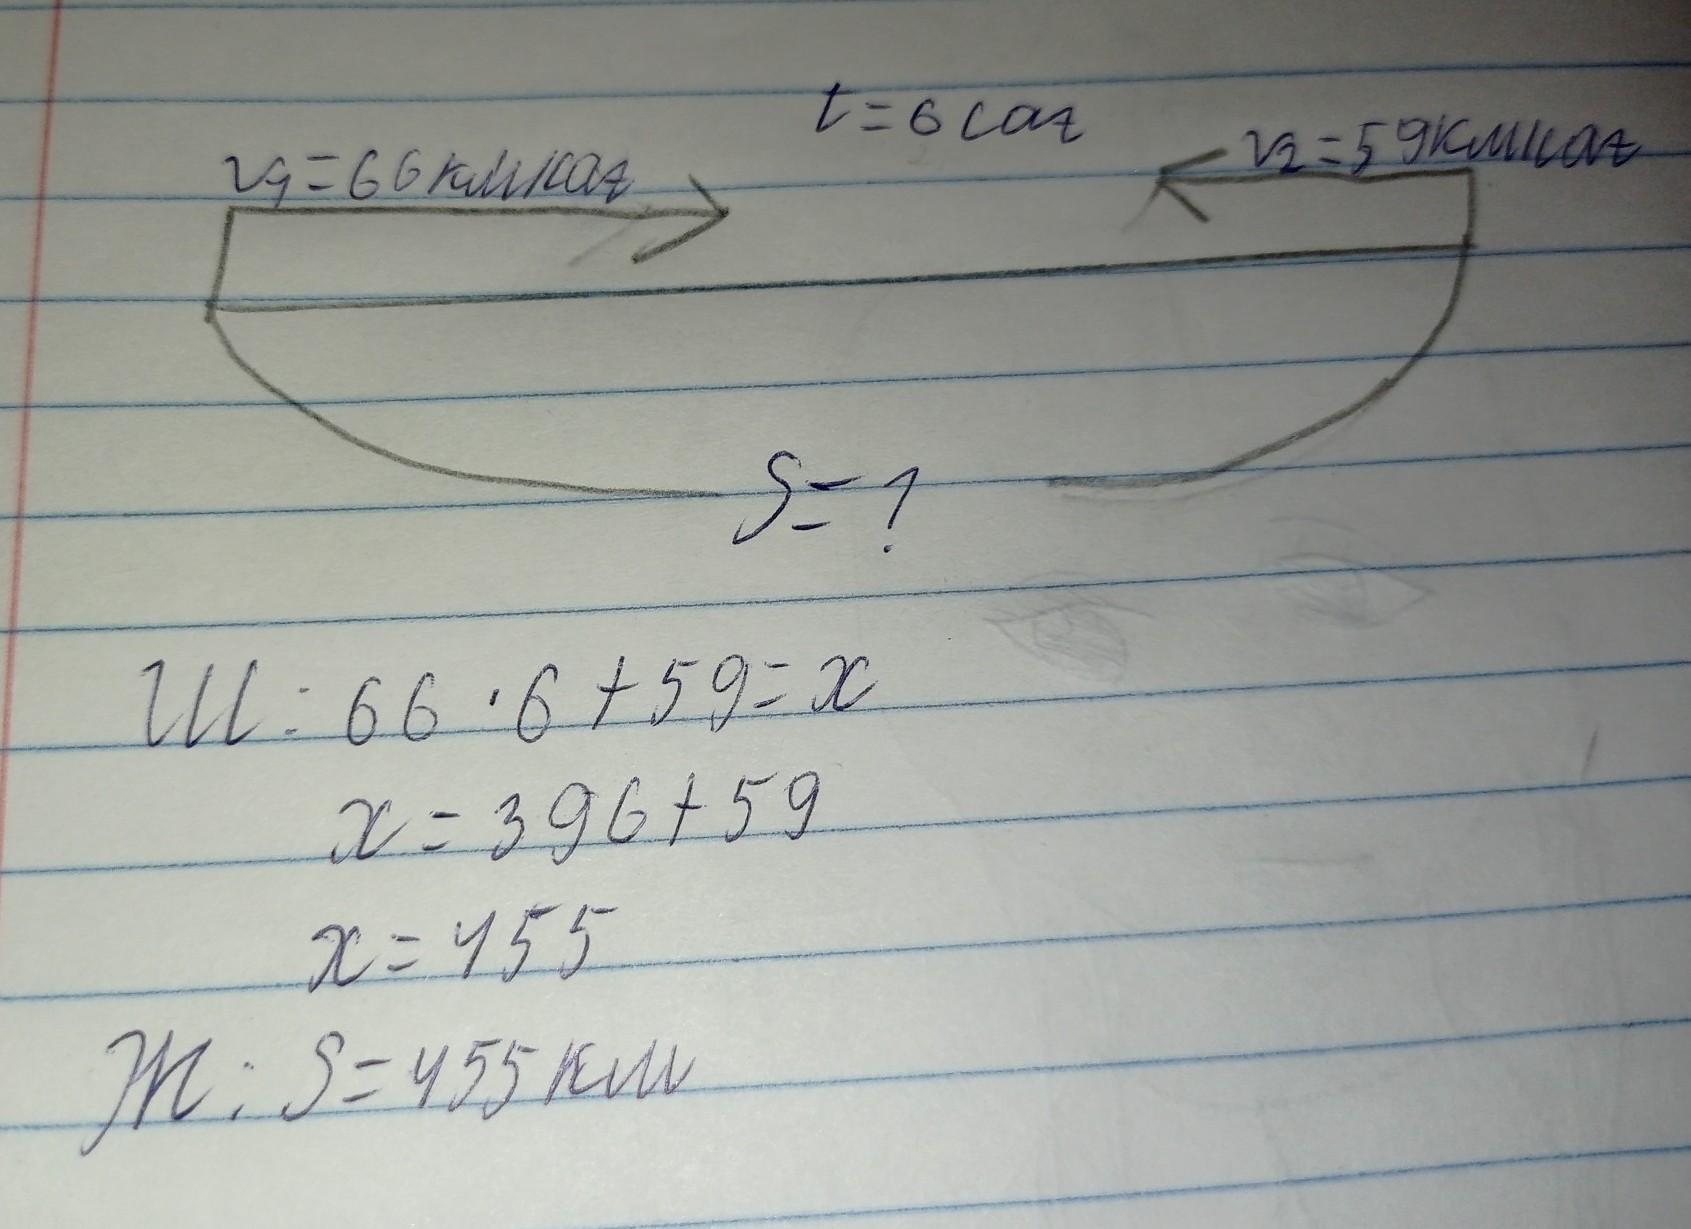 t=6 саг
v1=66км/саг v2=59км/саг
S=?
Ш: 66·6+59=x
x=396+59
x=455
Ж: S=455км